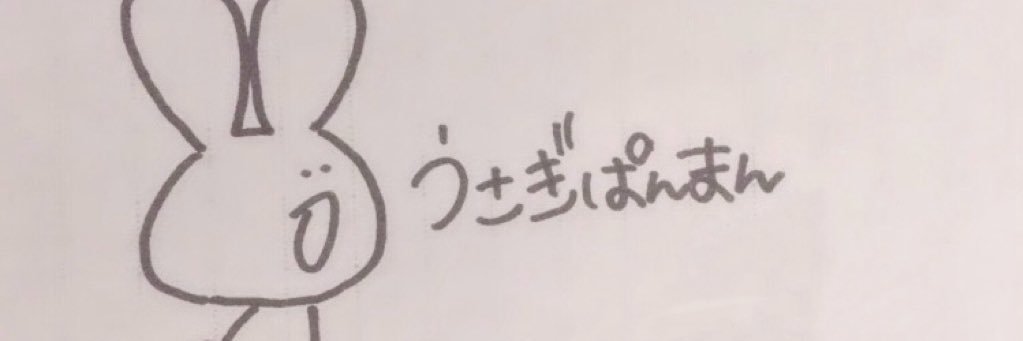 うさぎぱんまん